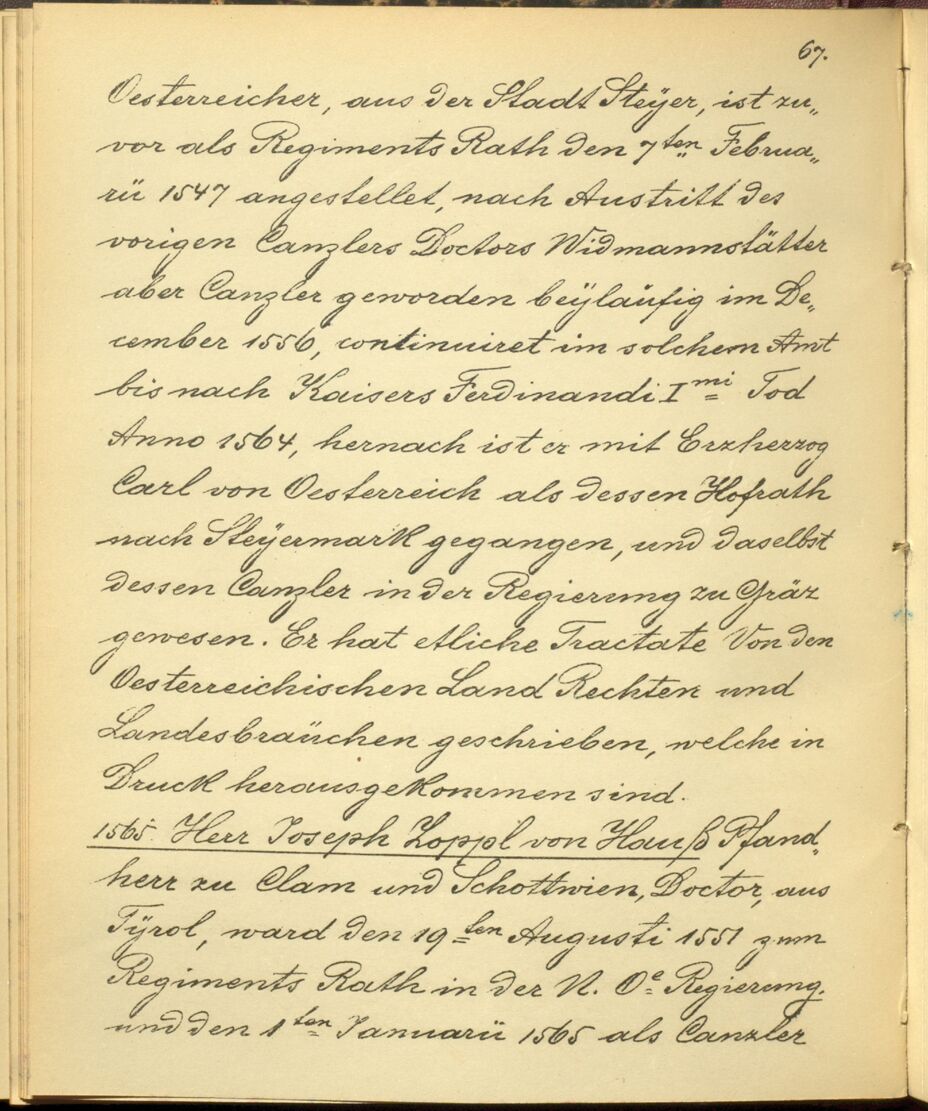 67.
Oesterreicher, aus der Stadt Steÿer, ist zu„
vor als Regiments Rath den 7ten Februa„
rii 1547 angestellet, nach Austritt des
vorigen Canzlers Doctors Widmannstätter
aber Canzler geworden beÿläufig im De„
cember 1556, continuiret im solchem Amt
bis nach Kaisers Ferdinandi I mi Tod
Anno 1564, hernach ist er mit Erzherzog
Carl von Oesterreich als dessen Hofrath
nach Steÿermark gegangen, und daselbst
dessen Canzler in der Regierung zu Gräz
gewesen. Er hat etliche Tractate Von den
Oesterreichischen Land Rechten und
Landesbräuchen geschrieben, welche in
Druck herausgekommen sind.
1565. Herr Joseph Zoppl von Hauß Pfand„
herr zu Clam und Schottwien, Doctor, aus
Tÿrol, ward den 19ten Augusti 1551 zum
Regiments Rath in der N. Oe Regierung.
und den 1ten Januarii 1565 als Canzler